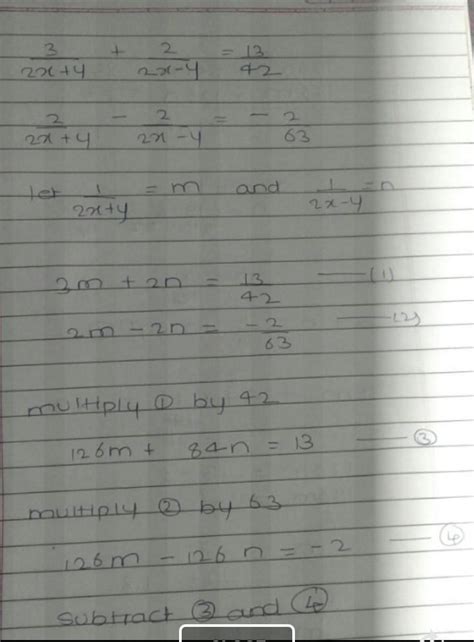 3/(2x+y) + 2/(2x-y) = 13/42
2/(2x+y) - 2/(2x-y) = -2/63
let 1/(2x+y) = m and 1/(2x-y) = n
3m + 2n = 13/42 —— (1)
2m - 2n = -2/63 —— (2)
multiply ① by 42
126m + 84n = 13 —— ③
multiply ② by 63
126m - 126n = -2 —— ④
subtract ③ and ④